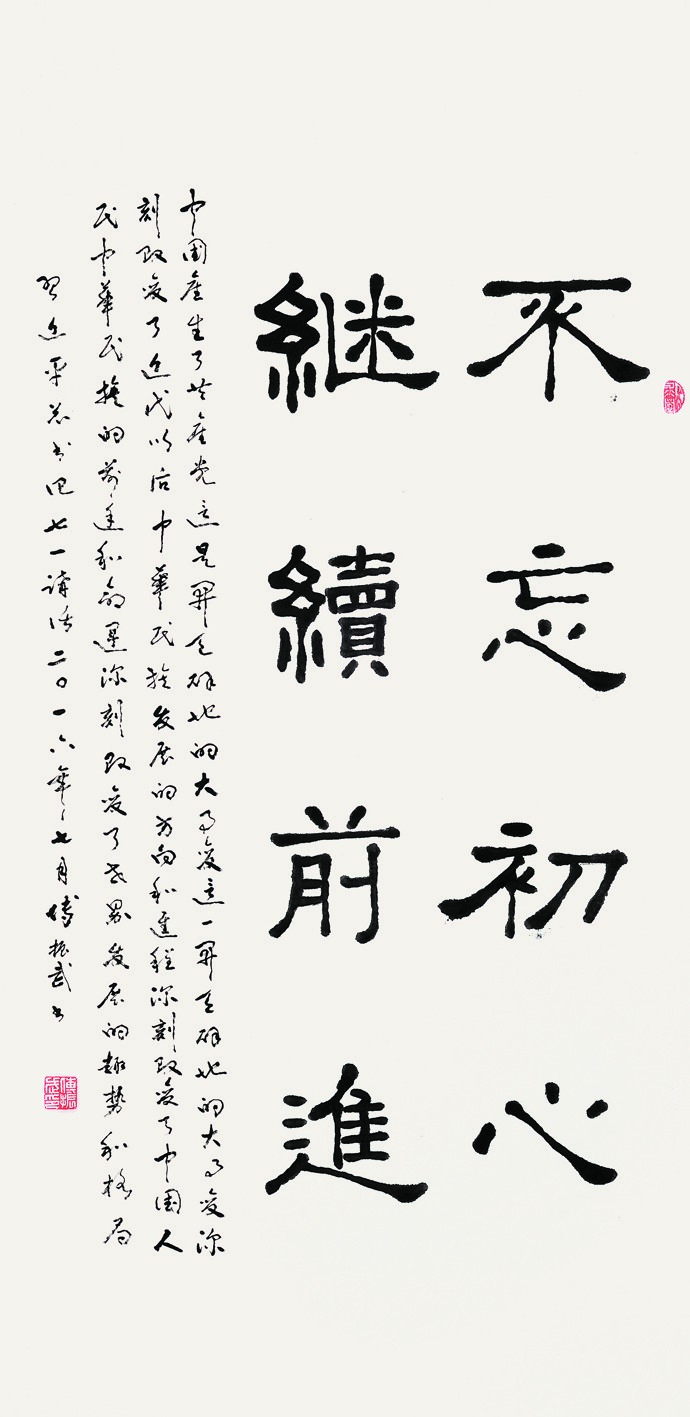 不忘初心
继續前進
中国產生了共產党这是开天辟地的大事变这一开天辟地的大事变深
刻改变了近代以后中華民族发展的方向和進程深刻改变了中国人
民中華民族的前途和命運深刻改变了世界发展的趋势和格局
习近平总书记七一讲话二〇一六年七月傅振武书
傅振武印